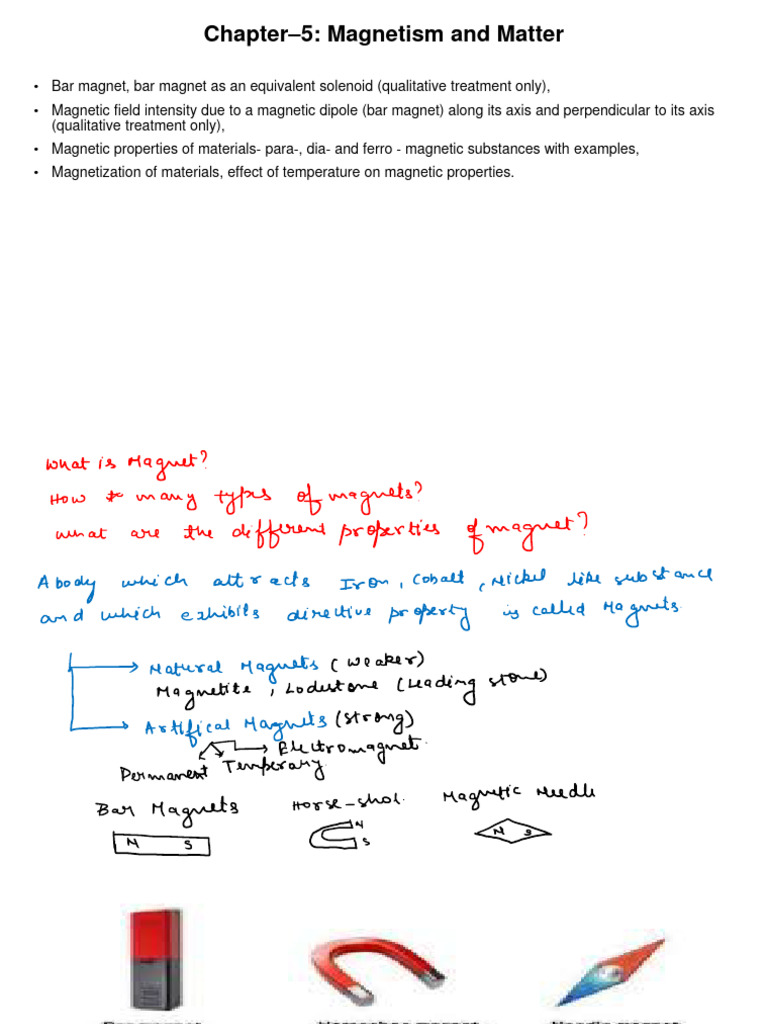 Chapter–5: Magnetism and Matter
• Bar magnet, bar magnet as an equivalent solenoid (qualitative treatment only),
• Magnetic field intensity due to a magnetic dipole (bar magnet) along its axis and perpendicular to its axis
(qualitative treatment only),
• Magnetic properties of materials- para-, dia- and ferro - magnetic substances with examples,
• Magnetization of materials, effect of temperature on magnetic properties.
What is Magnet?
How many types of magnets?
What are the different properties of magnet?
A body which attracts Iron, Cobalt, Nickel like substance
and which exhibits directive property is called Magnets.
Natural Magnets (weaker)
Magnetite, Lodestone (Leading stone)
Artifical Magnets (strong)
Electromagnet.
Permanent Temperary
Bar Magnets Horse-shoe. Magnetic Needle
N S N S N S